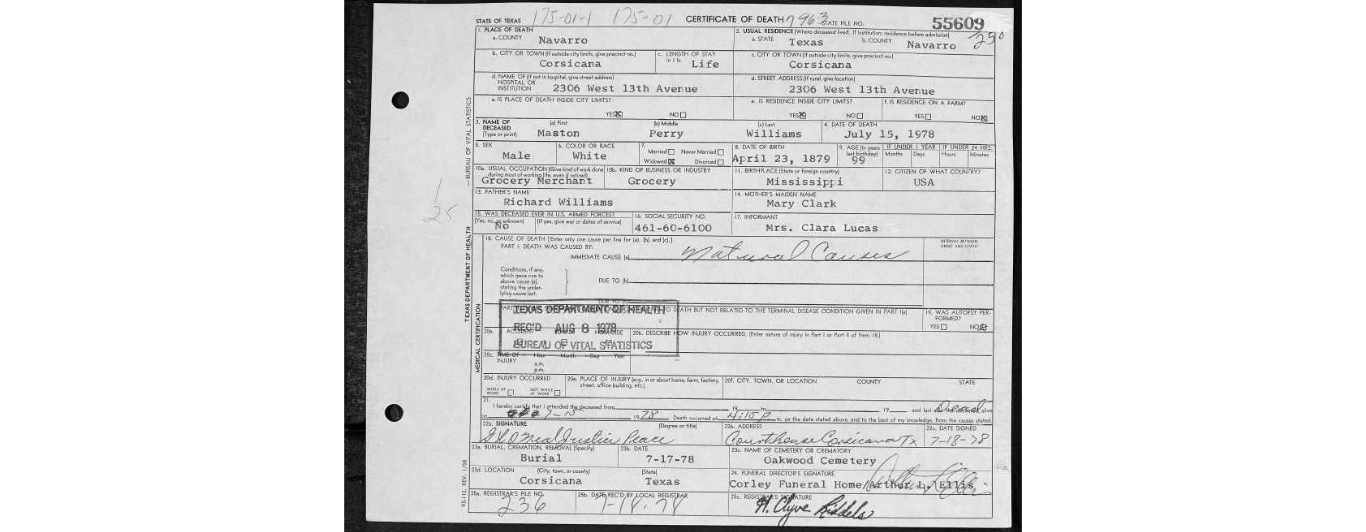 175-01-1 175-01 7963
STATE OF TEXAS CERTIFICATE OF DEATH STATE FILE NO. 55609
1. PLACE OF DEATH 2. USUAL RESIDENCE (Where deceased lived. If institution: residence before admission)
a. COUNTY Navarro a. STATE Texas b. COUNTY Navarro
b. CITY OR TOWN (If outside city limits, give precinct no.) c. LENGTH OF STAY in 1 b. c. CITY OR TOWN (If outside city limits, give precinct no.)
Corsicana Life Corsicana
d. NAME OF (If not in hospital, give street address) HOSPITAL OR INSTITUTION d. STREET ADDRESS (If rural, give location)
2306 West 13th Avenue 2306 West 13th Avenue
e. IS PLACE OF DEATH INSIDE CITY LIMITS? e. IS RESIDENCE INSIDE CITY LIMITS? f. IS RESIDENCE ON A FARM?
YES NO YES NO YES NO
3. NAME OF DECEASED (Type or print) (a) First (b) Middle (c) Last 4. DATE OF DEATH
Maston Perry Williams July 15, 1978
5. SEX 6. COLOR OR RACE 7. Married Never Married Widowed Divorced 8. DATE OF BIRTH 9. AGE (In years last birthday) IF UNDER 1 YEAR IF UNDER 24 HRS.
Months Days Hours Minutes
Male White April 23, 1879 99
10a. USUAL OCCUPATION (Give kind of work done during most of working life, even if retired) 10b. KIND OF BUSINESS OR INDUSTRY 11. BIRTHPLACE (State or foreign country) 12. CITIZEN OF WHAT COUNTRY?
Grocery Merchant Grocery Mississippi USA
13. FATHER'S NAME 14. MOTHER'S MAIDEN NAME
Richard Williams Mary Clark
15. WAS DECEASED EVER IN U.S. ARMED FORCES? 16. SOCIAL SECURITY NO. 17. INFORMANT
(Yes, no, or unknown) (If yes, give war or dates of service)
No 461-60-6100 Mrs. Clara Lucas
18. CAUSE OF DEATH [Enter only one cause per line for (a), (b), and (c).] INTERVAL BETWEEN ONSET AND DEATH
PART I. DEATH WAS CAUSED BY:
IMMEDIATE CAUSE (a) Natural Causes
Conditions, if any, which gave rise to above cause (a), stating the underlying cause last.
DUE TO (b)
DUE TO
TO DEATH BUT NOT RELATED TO THE TERMINAL DISEASE CONDITION GIVEN IN PART I(a) 19. WAS AUTOPSY PERFORMED?
YES NO
TEXAS DEPARTMENT OF HEALTH
REC'D AUG 8 1978
BUREAU OF VITAL STATISTICS
20a. 20b. DESCRIBE HOW INJURY OCCURRED. (Enter nature of injury in Part I or Part II of item 18.)
20c. TIME OF INJURY Hour Month Day Year
a.m.
p.m.
20d. INJURY OCCURRED 20e. PLACE OF INJURY (e.g., in or about home, farm, factory, street, office building, etc.) 20f. CITY, TOWN, OR LOCATION COUNTY STATE
WHILE AT WORK NOT WHILE AT WORK
21. I hereby certify that I attended the deceased from 19 19 and last Dead alive
on 7-15 1978 Death occurred at 4:15 P m. on the date stated above, and to the best of my knowledge, from the causes stated.
22a. SIGNATURE (Degree or title) 22b. ADDRESS 22c. DATE SIGNED
Justice Peace Courthouse Corsicana Tx 7-18-78
23a. BURIAL, CREMATION, REMOVAL (Specify) 23b. DATE 23c. NAME OF CEMETERY OR CREMATORY
Burial 7-17-78 Oakwood Cemetery
23d. LOCATION (City, town, or county) (State) 24. FUNERAL DIRECTOR'S SIGNATURE
Corsicana Texas Corley Funeral Home/Arthur L. Ellis
25a. REGISTRAR'S FILE NO. 25b. DATE REC'D BY LOCAL REGISTRAR 25c. REGISTRAR'S SIGNATURE
236 7-18-78
TEXAS DEPARTMENT OF HEALTH — BUREAU OF VITAL STATISTICS
MEDICAL CERTIFICATION
VS-112, REV. 1/78
1/25